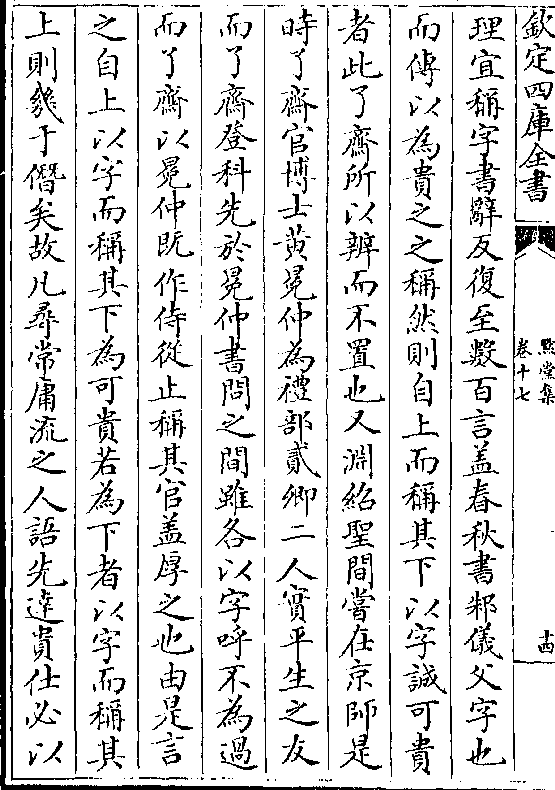 欽定四庫全書
默堂集
卷十七
十四
理宜稱字書辭反復至數百言盖春秋書邾儀父字也
而傳以為貴之之稱然則自上而稱其下以字誠可貴
者此了齋所以辨而不置也又淵紹聖間嘗在京師是
時了齋官博士黄冕仲為禮部貳卿二人實平生之友
而了齋登科先於冕仲書問之間雖各以字呼不為過
而了齋以冕仲既作侍從止稱其官盖厚之也由是言
之自上以字而稱其下為可貴若為下者以字而稱其
上則幾于僭矣故凡尋常庸流之人語先達貴仕必以